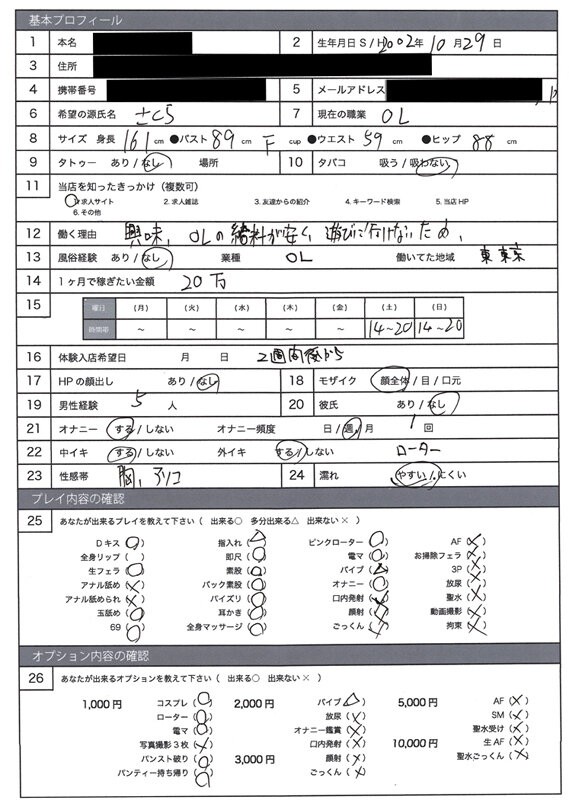 基本プロフィール
1 本名 2 生年月日 S / H 2002年 10月 29日
3 住所
4 携帯番号 5 メールアドレス
6 希望の源氏名 さくら 7 現在の職業 OL
8 サイズ 身長 161 cm ●バスト 89 cm F cup ●ウエスト 59 cm ●ヒップ 88 cm
9 タトゥー あり / なし 場所 10 タバコ 吸う / 吸わない
11 当店を知ったきっかけ（複数可）
1. 求人サイト 2. 求人雑誌 3. 友達からの紹介 4. キーワード検索 5. 当店HP
6. その他
12 働く理由 興味、OLの給料が安く、遊びに行けないため、
13 風俗経験 あり / なし 業種 OL 働いてた地域 東京
14 1ヶ月で稼ぎたい金額 20万
15 曜日 (月) (火) (水) (木) (金) (土) (日)
時間帯 〜 〜 〜 〜 〜 14~20 14~20
16 体験入店希望日 月 日 2週間後から
17 HPの顔出し あり / なし 18 モザイク 顔全体 / 目 / 口元
19 男性経験 5 人 20 彼氏 あり / なし
21 オナニー する / しない オナニー頻度 日 / 週 / 月 1 回
22 中イキ する / しない 外イキ する / しない ローター
23 性感帯 胸、クリ 24 濡れ やすい / にくい
プレイ内容の確認
25 あなたが出来るプレイを教えて下さい（ 出来る○ 多分出来る△ 出来ない× ）
Dキス (○) 指入れ (△) ピンクローター (○) AF (×)
全身リップ ( ) 即尺 (○) 電マ (○) お掃除フェラ (×)
生フェラ (○) 素股 (○) バイブ (△) 3P (×)
アナル舐め (×) バック素股 (○) オナニー (○) 放尿 (×)
アナル舐められ (×) パイズリ (○) 口内発射 (×) 聖水 (×)
玉舐め (○) 耳かき (○) 顔射 (×) 動画撮影 (×)
69 (○) 全身マッサージ (○) ごっくん (×) 拘束 (×)
オプション内容の確認
26 あなたが出来るオプションを教えて下さい（ 出来る○ 出来ない× ）
1,000円 コスプレ (○) 2,000円 バイブ (△) 5,000円 AF (×)
ローター (○) 放尿 (×) SM (×)
電マ (○) オナニー鑑賞 (×) 聖水受け (×)
写真撮影3枚 (×) 口内発射 (×) 10,000円 生AF (×)
パンスト破り (○) 3,000円 顔射 (×) 聖水ごっくん (×)
パンティー持ち帰り (○) ごっくん (×)